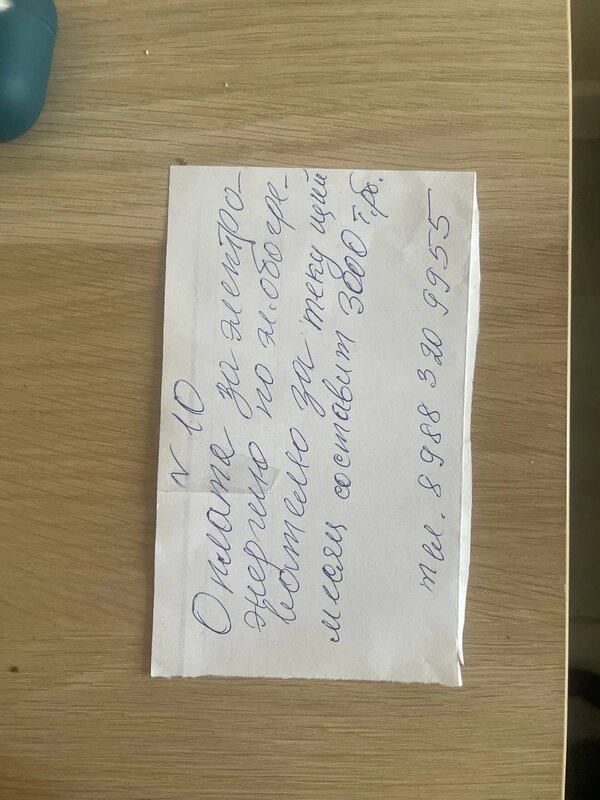 N 10
Оплата за электро-
энергию по эл. обогре-
вателю за текущий
месяц составит 3000 т.рб.
тел. 8 988 320 99 55